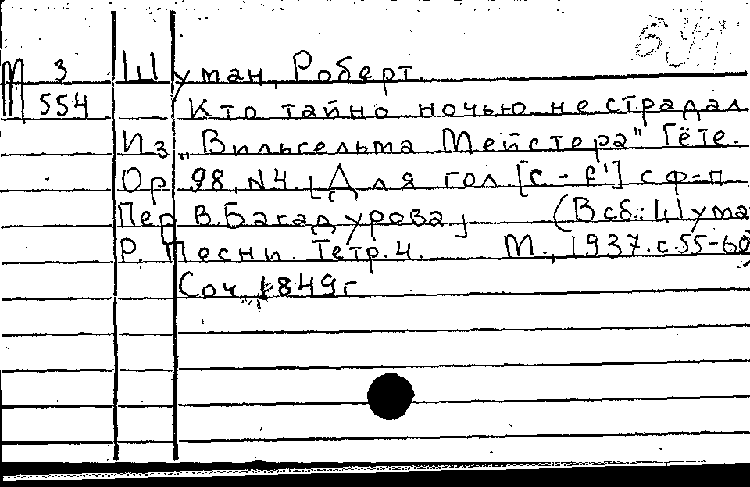 641
М 3 Шуман, Роберт.
554 Кто тайно ночью не страдал
Из „Вильгельма Мейстера" Гёте.
Op. 98, N4. [Для гол. [c - f¹] с ф-п.
Пер. В. Багадурова] (В сб.: Шума
Р. Песни. Тетр. 4. М., 1937. с. 55-60
Соч. 1849 г